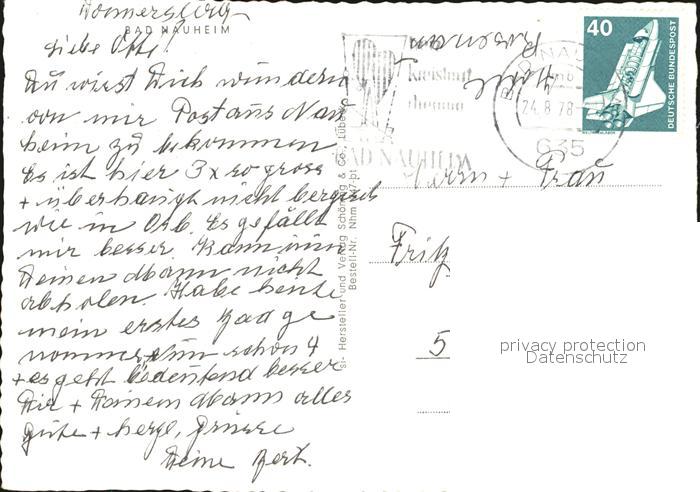 Donnerstag
BAD NAUHEIM
Liebe
Du wirst Dich wundern
von mir Post aus Nau
heim zu bekommen
Es ist hier 3x so gross
+ überhaupt nicht bergisch
wie in Orb. Es gefällt
mir besser. Kann nun
Deinen Mann nicht
abholen. Habe heute
mein erstes Bad ge
nommen, schon 4
+ es geht bedeutend besser
Dir + Deinem Mann alles
gute + herzl. Grüsse
Deine
si- Hersteller und Verlag Schöning & Co., Lübeck
Bestell-Nr. Nhm
BAD NAUHEIM
24.8.78
635
40
DEUTSCHE BUNDESPOST
Herrn + Frau
Fritz
5
privacy protection
Datenschutz